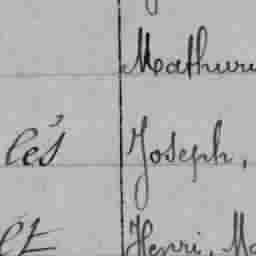 Mathuri
lés Joseph,
et Henri, Ma